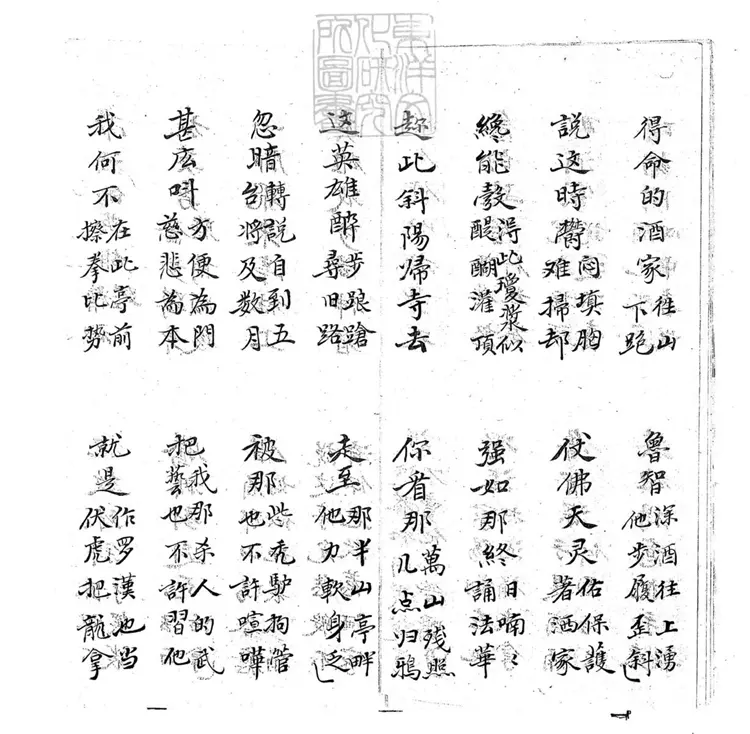 得命的酒家往山下跑
魯智深酒往上湧他步履歪斜
説这時鬱悶填胸难掃却
仗佛天灵佑保護著洒家
纔能彀得此瓊漿似醍醐灌頂
强如那終日喃〻誦法華
趂此斜陽帰寺去
你看那萬山残照几点归鴉
这英雄醉步踉蹌尋旧路
走至那半山亭畔他力軟身乏
忽暗轉説自到五台将及数月
被那些秃驴拘管也不許喧嘩
甚庅呌方便為門慈悲為本
把我那杀人的武藝也不許習他
我何不在此亭前擦拳比勢
就是作罗漢也当伏虎把龍拿